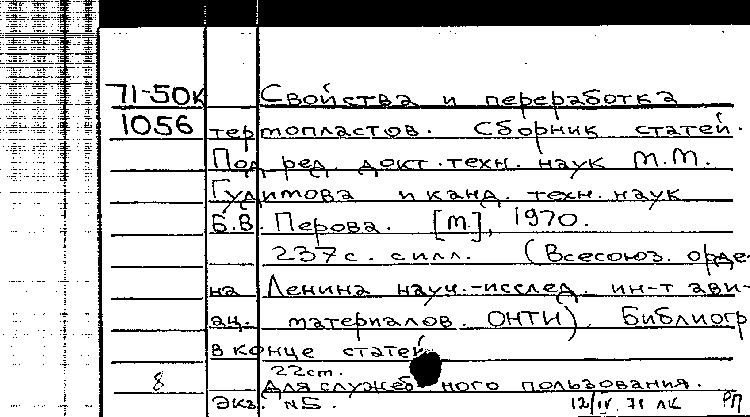 71-50к Свойства и переработка
1056 термопластов. Сборник статей.
Под ред. докт. техн. наук М.М.
Гудимова и канд. техн. наук
Б.В. Перова. [М.], 1970.
237 с. с илл. (Всесоюз. орде-
на Ленина науч.-исслед. ин-т ави-
ац. материалов. ОНТИ). Библиогр
в конце статей
22 cm.
8 Для служебного пользования.
Экз. №5. 12/IV 71 ЛК РП